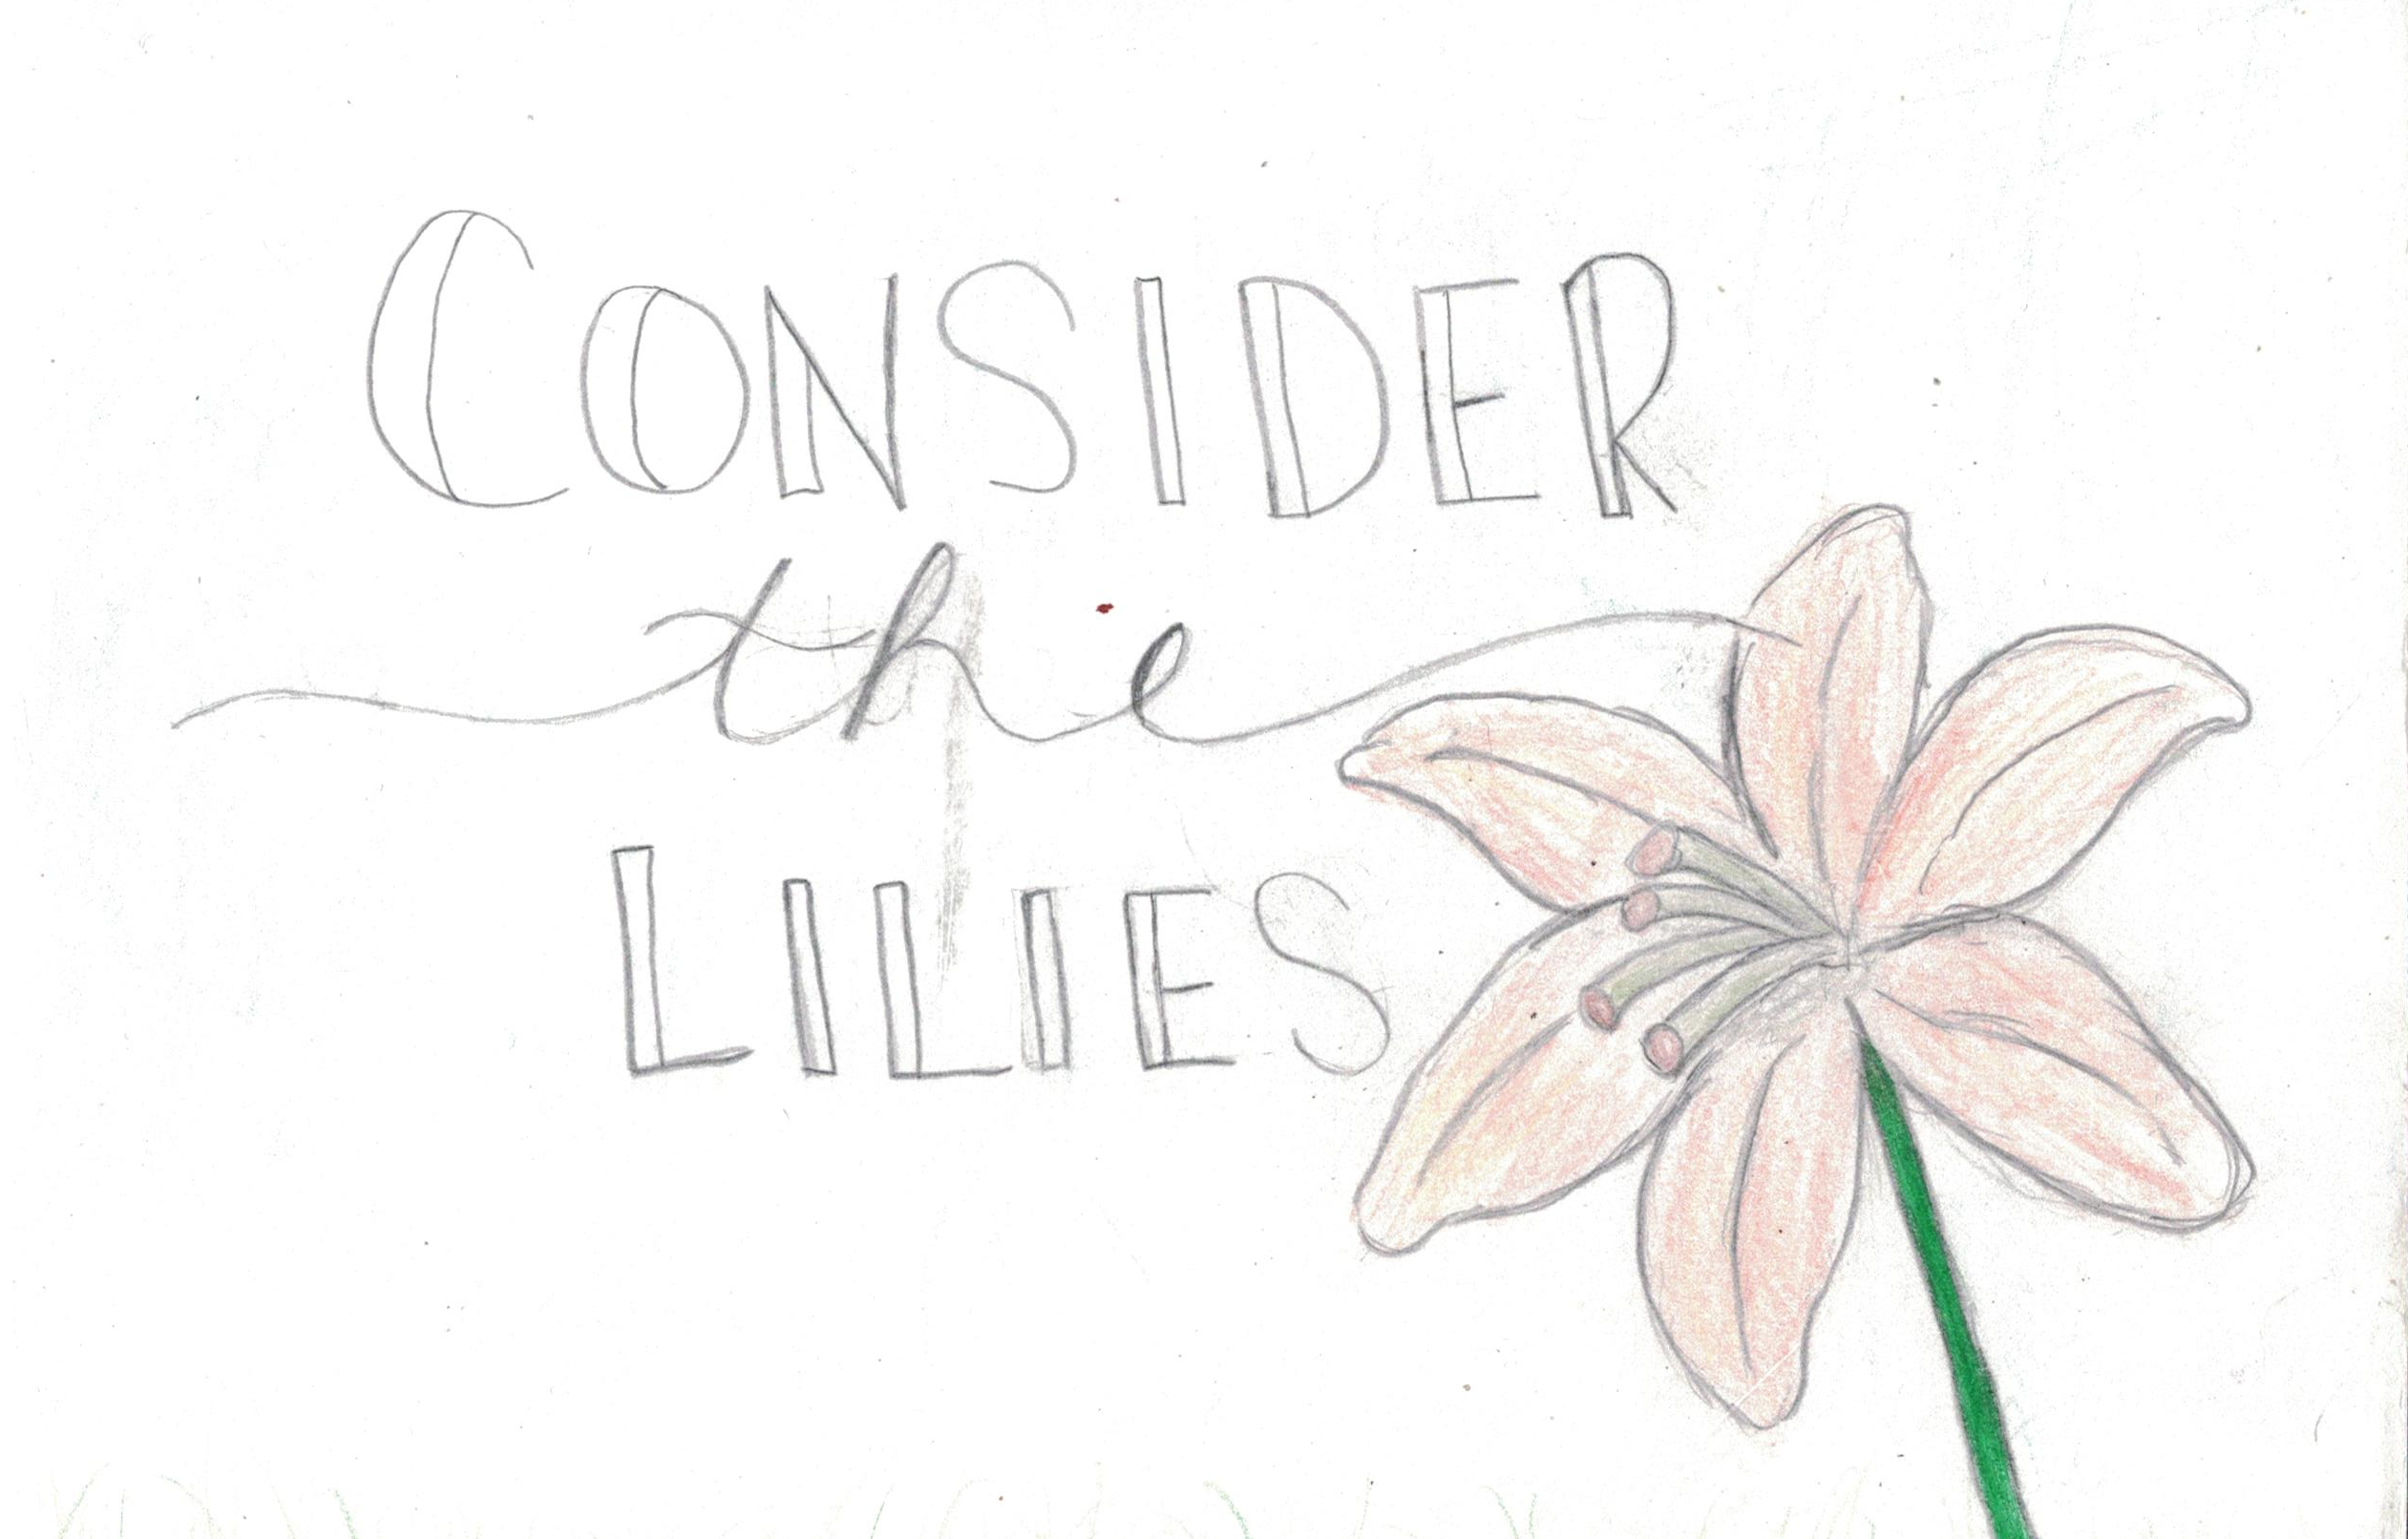 CONSIDER
the
LILIES